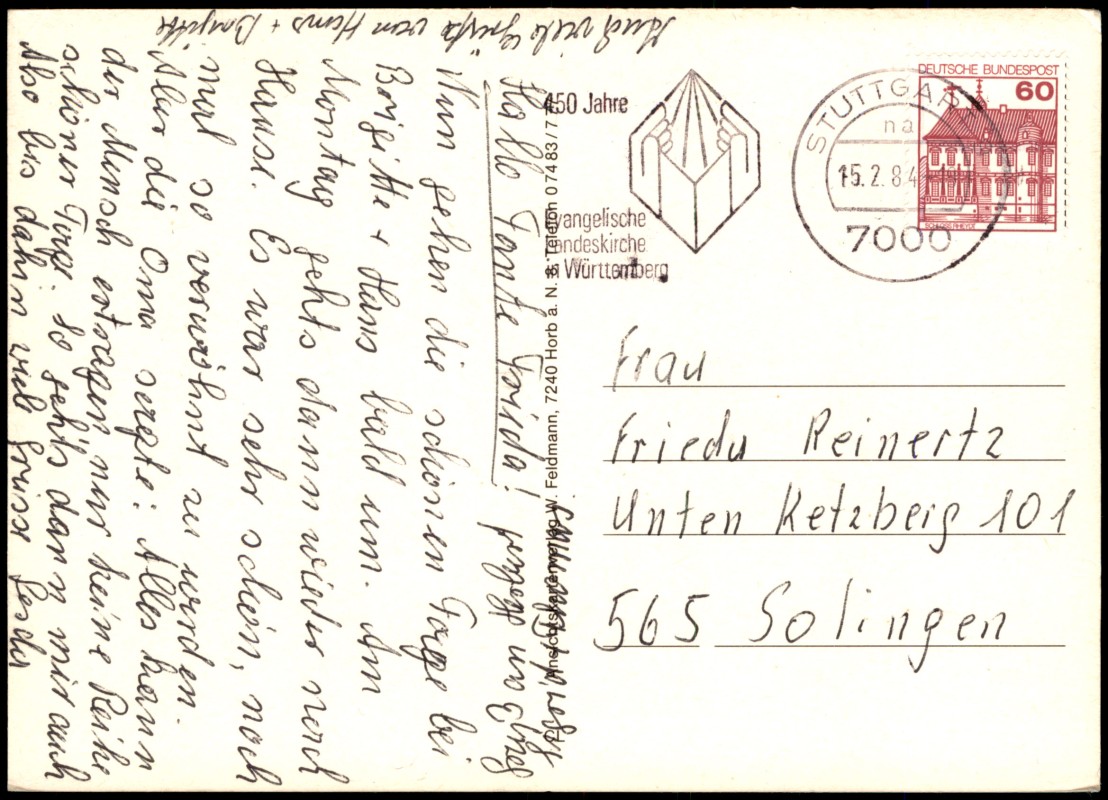 Hallo Tante Frieda!
Nun gehen die schönen Tage bei
Brigitte + Hans bald um. Am
Montag gehts dann wieder nach
Hause. Es war sehr schön, noch
mal so verwöhnt zu werden.
Aber die Oma sagte: Alles kann
der Mensch ertragen nur keine Reihe
schöner Tage. So geht's dann mir auch
Also bis dahin viele Grüsse
Auch viele Grüße von Hans + Brigitte
Ansichtskartenverlag W. Feldmann, 7240 Horb a. N. 8, Telefon 07483/77
450 Jahre
Evangelische
Landeskirche
in Württemberg
STUTTGART
na
15.2.84
7000
DEUTSCHE BUNDESPOST
60
SCHLOSS RHEYDT
Frau
Frieda Reinertz
Unten Ketzberg 101
565 Solingen